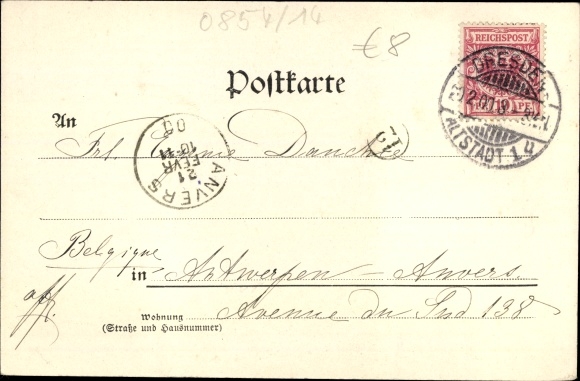 0854/14
€8
REICHSPOST
DRESDEN
ALTSTADT 14
Postkarte
An
Frl. Danckse
12
ANVERS
21
FEVR
10-11
00
Belgique
in Antwerpen – Anvers.
Wohnung
(Straße und Hausnummer)
Avenue du Sud 138